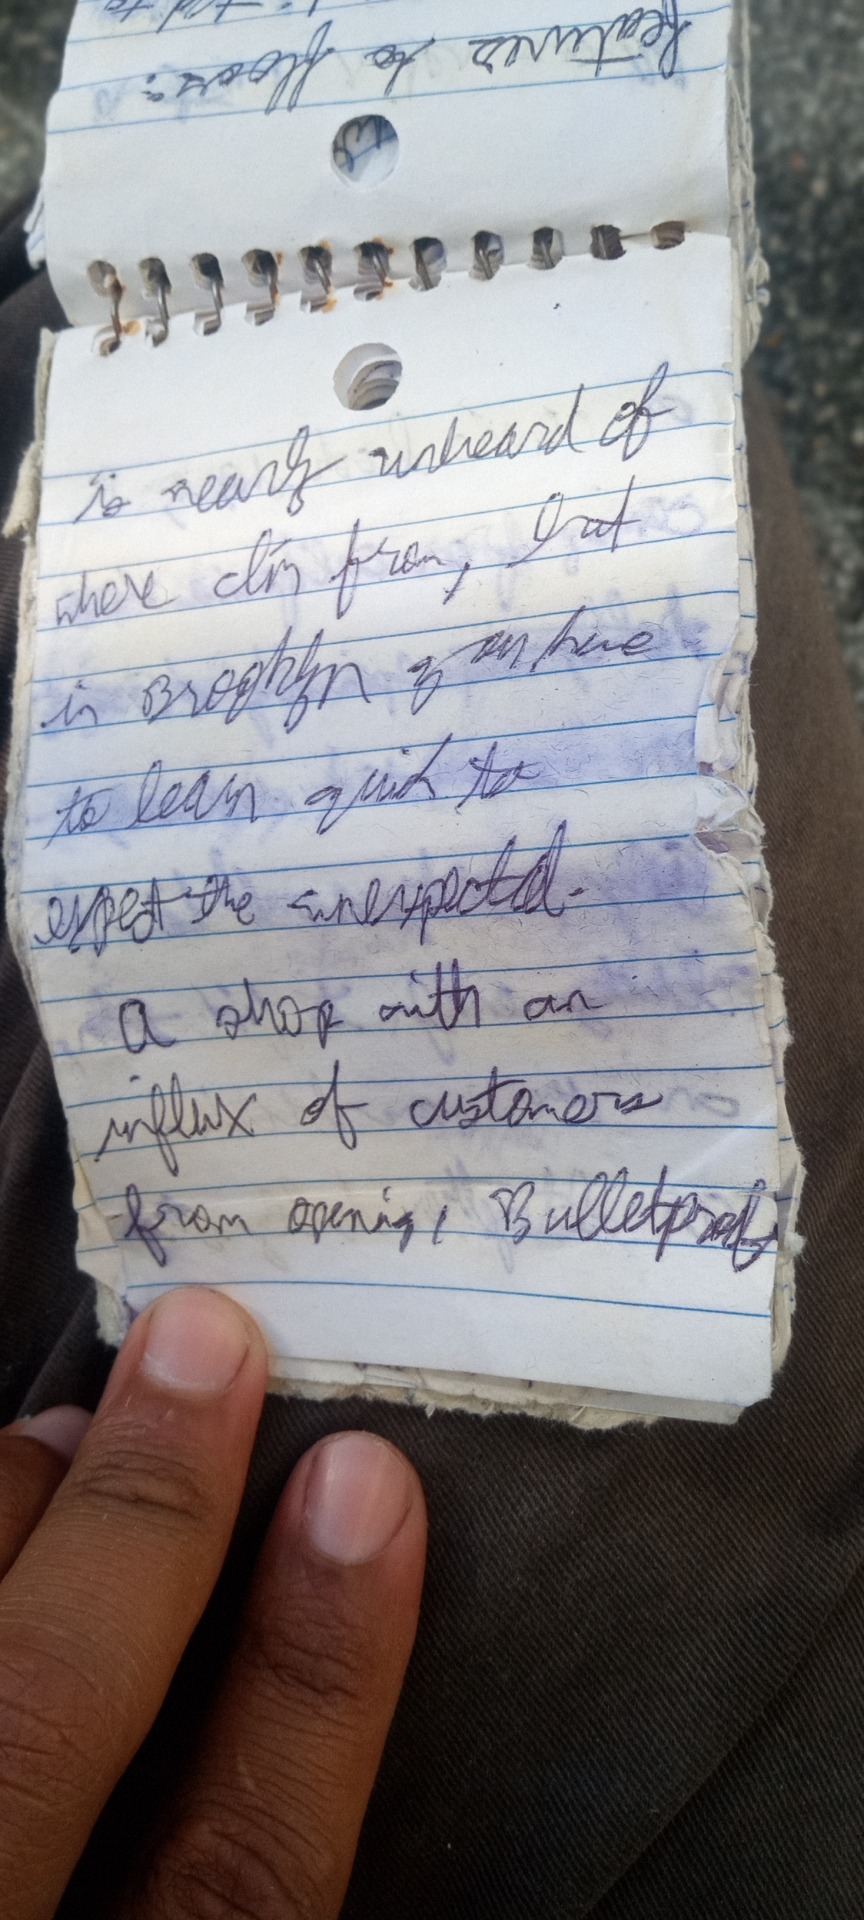 features to floor:
is nearly unheard of
where I'm from, but
in Brooklyn you have
to learn quick to
expect the unexpected.
A shop with an
influx of customers
from opening, Bulletproof